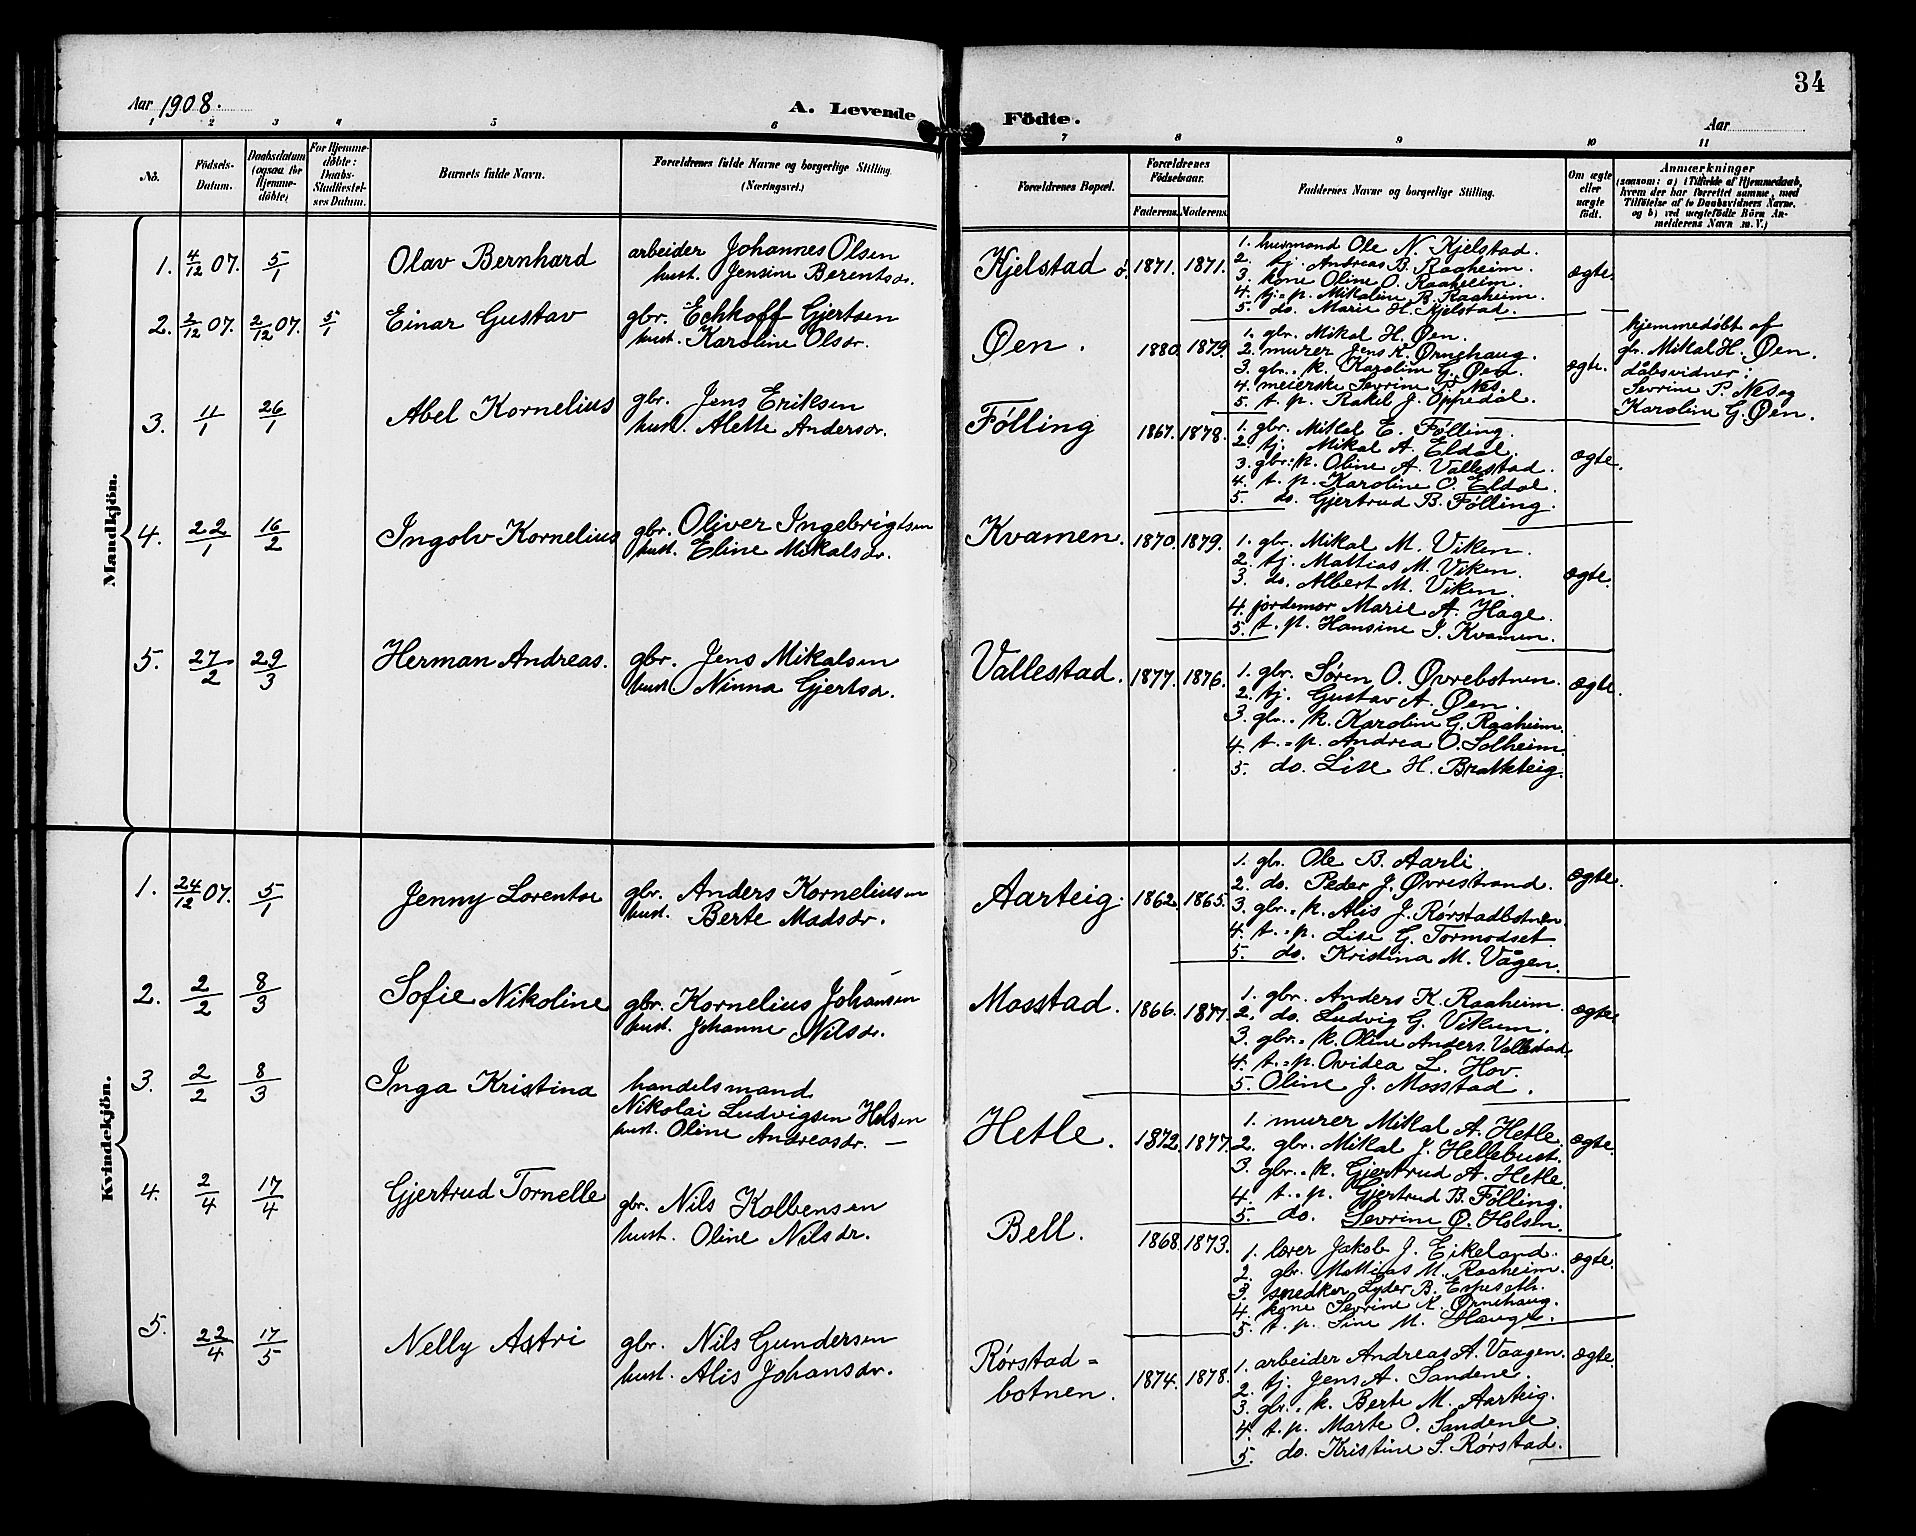 34
Aar 1908.
A. Levende Födte.
Aar
1 2 3 4 5 6 7 8 9 10 11
Nô.
Födsels-Datum.
Daabsdatum (ogsaa for Hjemme-döbte)
For Hjemme-döbte: Daabs-Stadfæstel-ses Datum.
Barnets fulde Navn.
Forældrenes fulde Navne og borgerlige Stilling.
(Næringsvei.)
Forældrenes Bopæl.
Forældrenes Fødselsaar.
Faderens. Moderens.
Faddernes Navne og borgerlige Stilling.
Om ægte eller uægte födt.
Anmærkninger
(saasom: a) i Tilfælde af Hjemmedaab,
hvem der har forrettet samme, med
Tilföielse af to Daabsvidners Navne,
og b) ved uægtefödte Börn An-
melderens Navn m. V.)
Mandkjön.
1. 4/12 07. 5/1 Olav Bernhard
arbeider Johannes Olsen
hust. Jensine Berentsdr.
Kjelstad ø. 1871. 1871.
1. husmand Ole N. Kjelstad.
2. tj. Andreas B. Raaheim.
3. kone Oline O. Raaheim.
4. tj=p. Mikaline B. Raaheim.
5. do. Marie H. Kjelstad.
ægte.
2. 2/12 07. 2/12 07. 5/1 Einar Gustav
gbr. Echkoff Gjertsen
hust. Karoline Olsdr.
Øen. 1880. 1879.
1. gbr. Mikal H. Øen.
2. murer Jens K. Ørnehaug.
3. gbr. k. Karoline G. Øen.
4. meierske Sevrine P. Nes.
5. t. p. Rakel J. Oppedal.
ægte.
hjemmedøbt af
gbr. Mikal H. Øen.
dåbsvidner:
Sevrine P. Nes og
Karoline G. Øen.
3. 11/1 26/1 Abel Kornelius
gbr. Jens Eriksen
hust. Alette Andersdr.
Følling 1867. 1878.
1. gbr. Mikal E. Følling.
2. tj. Mikal A. Eldal.
3. gbr: k. Oline A. Vallestad.
4. t. p. Karoline O. Eldal.
5. do. Gjertrud B. Følling.
ægte.
4. 22/1 16/2 Ingolv Kornelius
gbr. Oliver Ingebrigtsen
hust. Eline Mikalsdr.
Kvamen. 1870. 1879.
1. gbr. Mikal M. Viken.
2. tj. Mattias M. Viken.
3. do. Albert M. Viken.
4. jordemor Marie A. Hage.
5. t. p. Hansine I. Kvamen.
ægte.
5. 27/2 29/3 Herman Andreas.
gbr. Jens Mikalsen
hust. Ninna Gjertsdr.
Vallestad. 1877. 1876.
1. gbr. Søren O. Øvrebotnen.
2. tj. Gustav A. Øen.
3. gbr. k. Karoline G. Raaheim.
4. t. p. Andrea O. Solheim.
5. do. Lise H. Brattteig.
ægte.
Kvindekjön.
1. 24/12 07. 5/1 Jenny Lorentse
gbr. Anders Korneliussen
hust. Berte Madsdr.
Aarteig. 1862. 1865.
1. gbr. Ole B. Aarli.
2. do. Peder J. Øvrestrand.
3. gbr. k. Alis J. Rørstadbotnen
4. t. p. Lise G. Tormodset
5. do. Kristina M. Vågen.
ægte.
2. 2/2 8/3 Sofie Nikoline
gbr. Kornelius Johansen
hust. Johanne Nilsdr.
Mosstad. 1866. 1877.
1. gbr. Anders K. Raaheim.
2. do. Ludvig G. Vikum.
3. gbr. k. Oline Anders. Vallestad
4. t. p. Ovidea L. Hov.
5. Oline J. Mosstad.
ægte.
3. 2/2 8/3 Inga Kristina
handelsmand
Nikolai Ludvigsen Helsen
hust. Oline Andreasdr. —
Hetle. 1872. 1877.
1. murer Mikal A. Hetle.
2. gbr. Mikal J. Hellebust.
3. gbr. k. Gjertrud A. Hetle.
4. t. p. Gjertrud B. Følling.
5. do. Sevrine Ø. Helsen.
ægte.
4. 2/4 17/4 Gjertrud Tornelle
gbr. Nils Kolbensen
hust. Oline Nilsdr.
Bell. 1868. 1873.
1. lærer Jakob J. Eikeland.
2. gbr. Mattias M. Raaheim.
3. snedker Lyder B. Espeseth.
4. kone Sevrine K. Ørnehaug.
5. t. p. Sine M. Hauge.
ægte.
5. 22/4 17/5 Nelly Astri
gbr. Nils Gundersen
hust. Alis Johansdr.
Rørstad=
botnen. 1874. 1878.
1. arbeider Andreas A. Vaagen.
2. tj. Jens A. Sandene.
3. gbr. k. Berte M. Aarteig.
4. t. p. Marte O. Sandene.
5. do. Kristine S. Rørstad.
ægte.